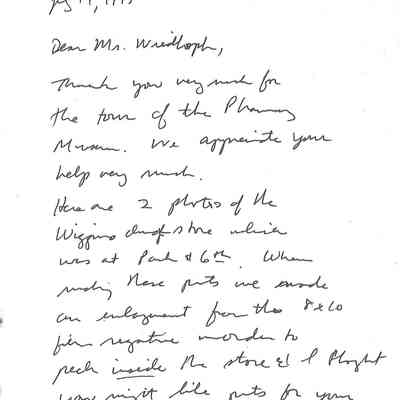 Dear Ms.
Thank you very much for
the tour of the Pharmacy
Museum. We appreciate your
help very much.
Here are 2 photos of the
Wiggins drugstore which
was at Park & 6th. When
making these prints we made
an enlargement from the 8x10
film negative in order to
peek inside the store & I thought
you might like prints for your